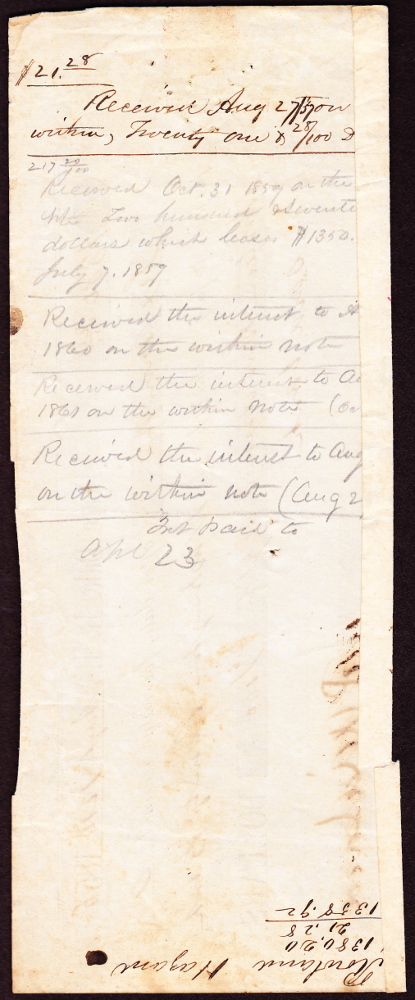 $21.28
Received Aug 27/57 on
within, Twenty one & 28/100 D
217 20/100
Received Oct. 31 1859 on the
Note Two hundred & Sevente
dollars which leaves $1350.
July 7. 1859
Received the interest to A
1860 on the within note
Received the interest to Au
1861 on the within note (
Received the interest to Aug
on the within note (Aug 2
Int paid to
Apl 23
Rowland Hazard
1380.20
21.28
1358.92